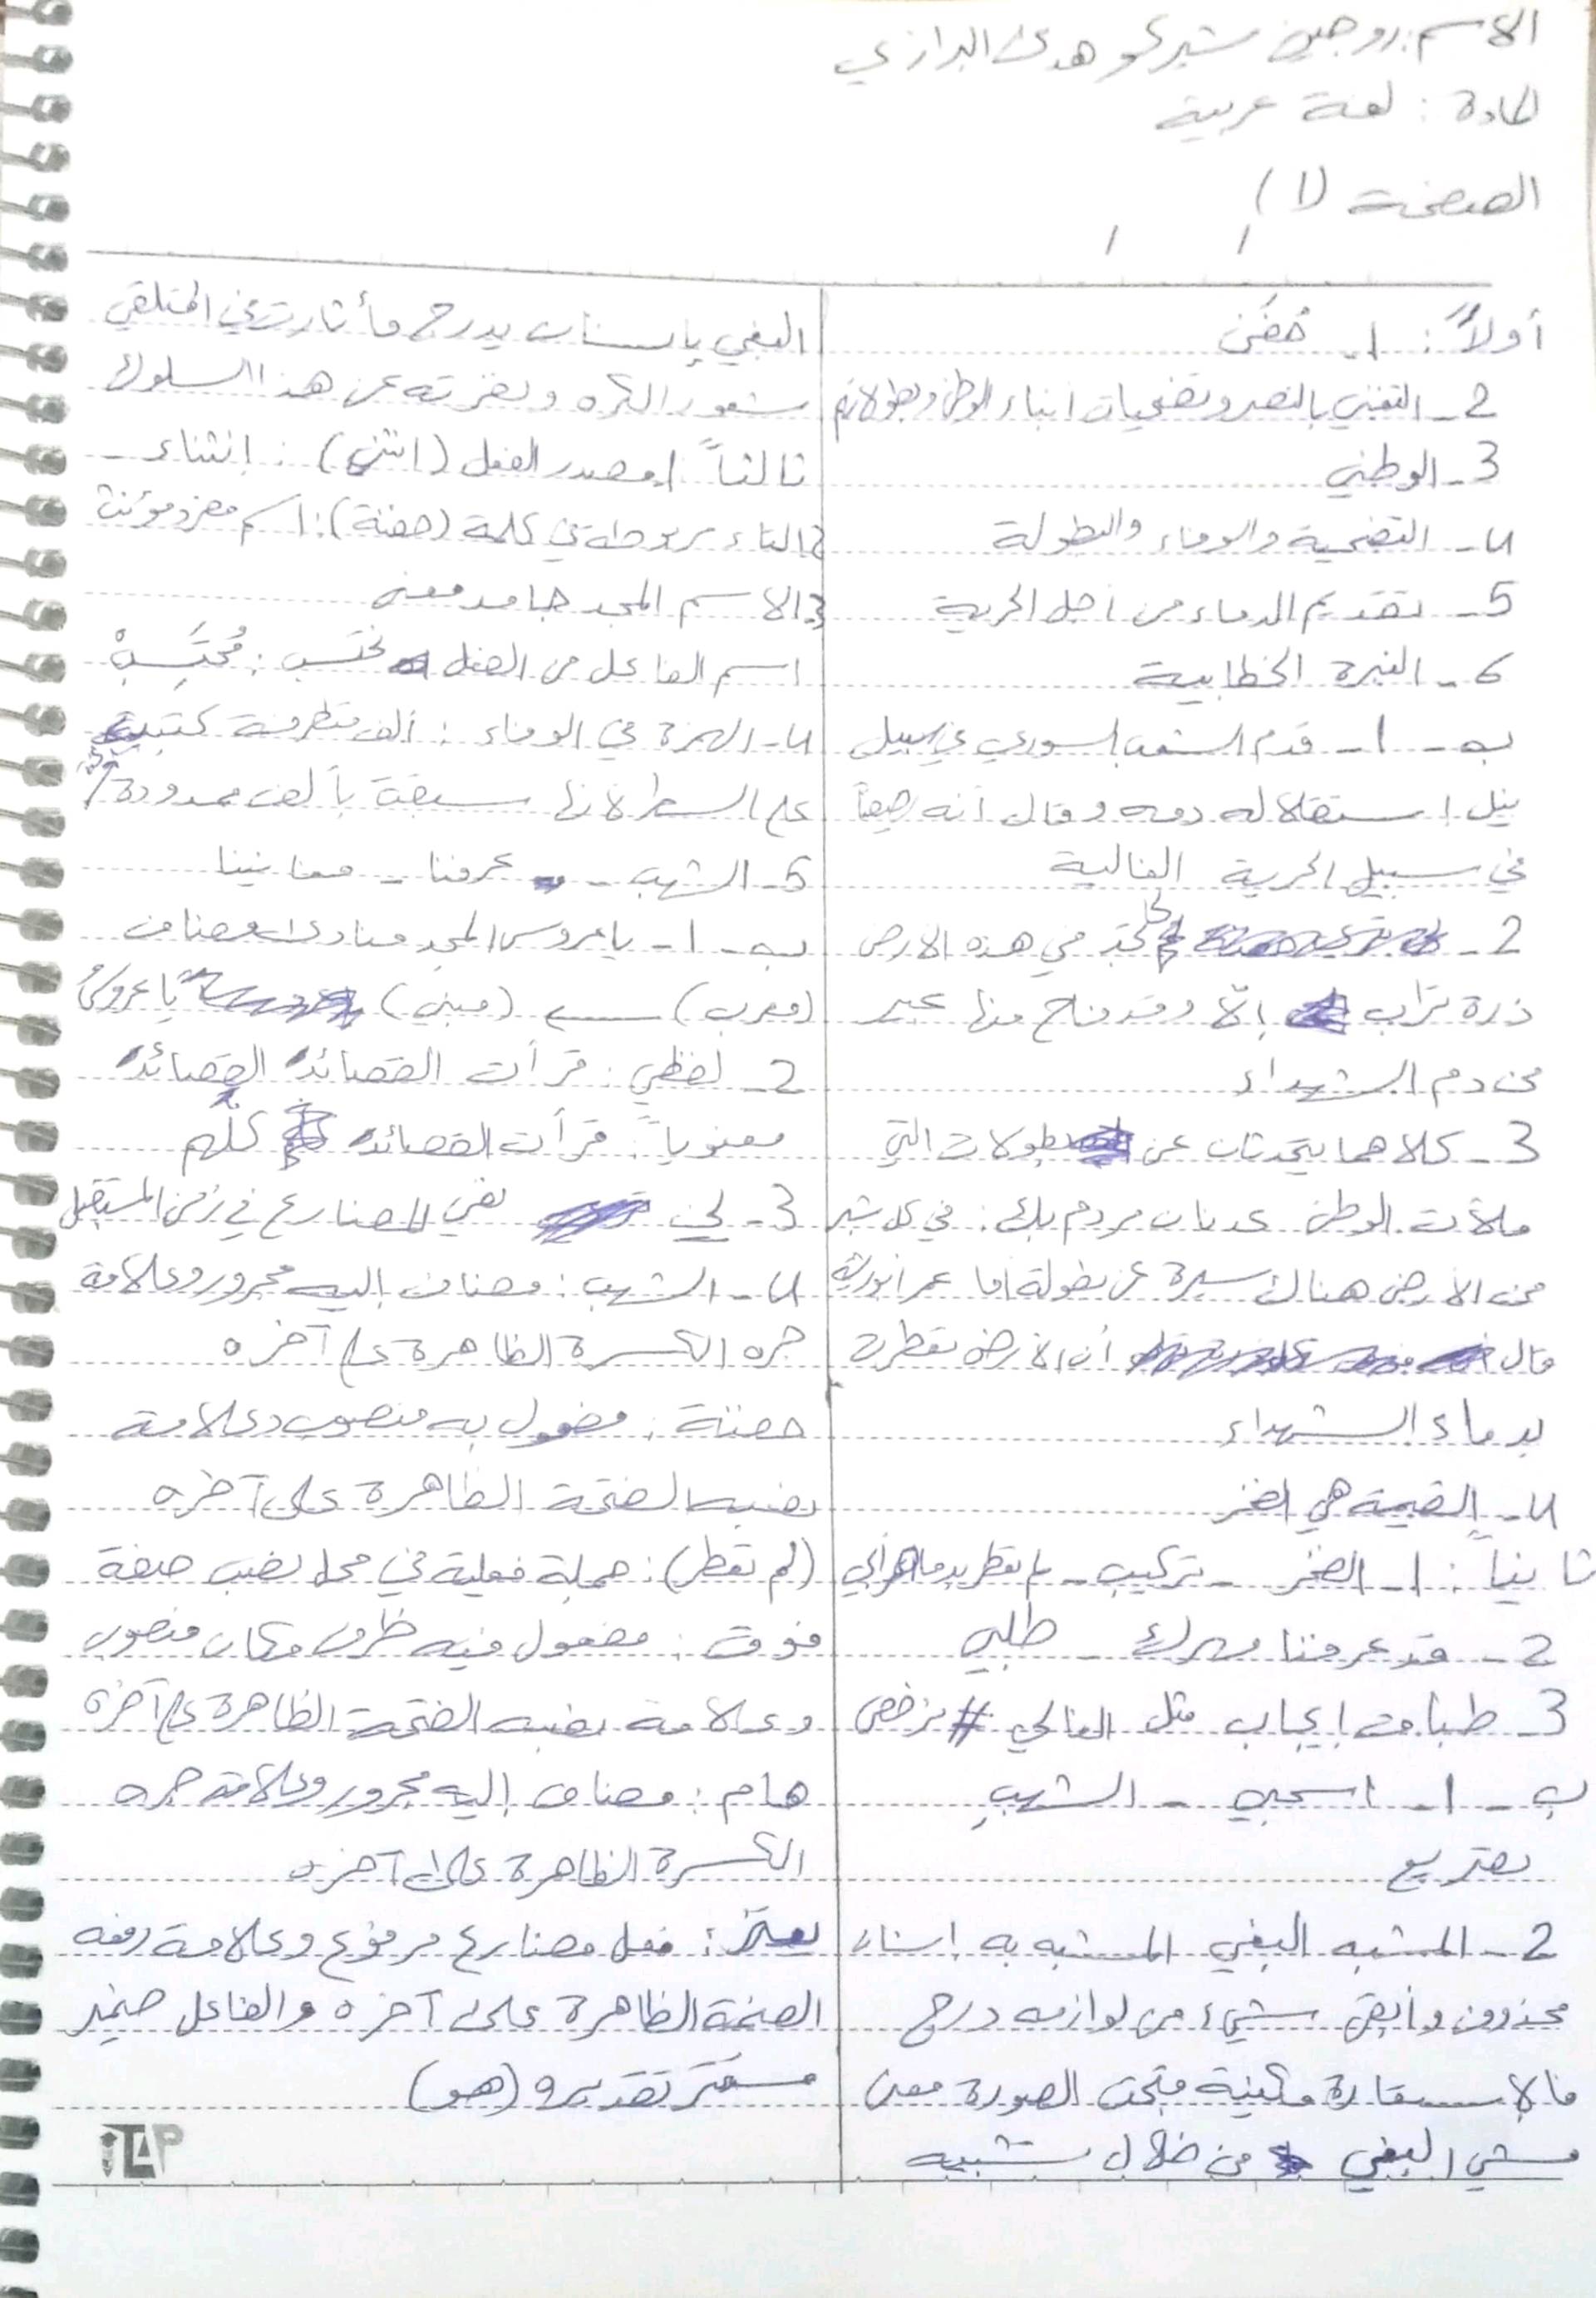 الاسم: روجين شيركو هدى البرازي
المادة: لغة عربية
الصفحة (1)
أولاً: 1- حَفَنَ
2- التغني بالنصر وتضحيات ابناء الوطن وبطولاتهم
3- الوطني
4- التضحية والوفاء والبطولة
5- تقديم الدماء من أجل الحرية
6- النبرة الخطابية
ب- 1- قدم الشعب السوري في سبيل
نيل إستقلاله دمه وقال أنه
في سبيل الحرية الغالية
2- لم نجد في هذه الارض
ذرة تراب إلّا وقد فاح منها عبير
من دم الشهداء
3- كلاهما يتحدثان عن بطولات التي
ملأت الوطن عدنان مردم بك: في كل شبر
من الأرض هناك سيرة عن بطولة اما عمر أبوريشة
قال أن الأرض تعطرت
بدماء الشهداء
4- القيمة هي الفخر
ثانياً: 1- الفخر - تركيب - لم تعطر بدما حر أبي
2- قد عرفنا مهرك - طلبي
3- طباق إيجاب مثل الغالي # يرخص
ب- 1- اسحبي - الشهبِ
تصريع
2- المشبه البغي المشبه به إنسان
محذوف وأبقى شيء من لوازمه درج
فالإستعارة مكنية فتحت الصورة معنى
مشي البغي من خلال تشبيه
البغي بإنسان يدرج فأثارت في المتلقي
شعور الكره ونفرته عن هذا السلوك
ثالثاً 1. مصدر الفعل (انثنى): إنثناء -
2. التاء مربوطة في كلمة (حفنة): اسم مفرد مؤنث
3. الاسم المجد جامد معنى
اسم الفاعل من الفعل نحتسب: مُحتَسِبْ
4- الهمزة في الوفاء: ألف متطرفة كتبت
على السطر لأنها سبقت بألف ممدودة
5- الشهب - عرفنا - مغانينا
ب- 1- يا عروس المجد منادى مضاف
(معرب) ← (مبني) يا عروسُ
2- لفظي: قرأت القصائدَ القصائدَ
معنوياً: قرأت القصائدَ كلّهم
3- لن نفي المضارع في زمن المستقبل
4- الشهب: مضاف إليه مجرور وعلامة
جره الكسرة الظاهرة على آخره
حفنة: مفعول به منصوب وعلامة
نصبه الفتحة الظاهرة على آخره
(لم تعطر): جملة فعلية في محل نصب صفة
فوق: مفعول فيه ظرف مكان منصوب
وعلامة نصبه الفتحة الظاهرة على آخره
هام: مضاف إليه مجرور وعلامة جره
الكسرة الظاهرة على آخره
فعل مضارع مرفوع وعلامة رفعه
الضمة الظاهرة على آخره والفاعل ضمير
مستتر تقديره (هو)